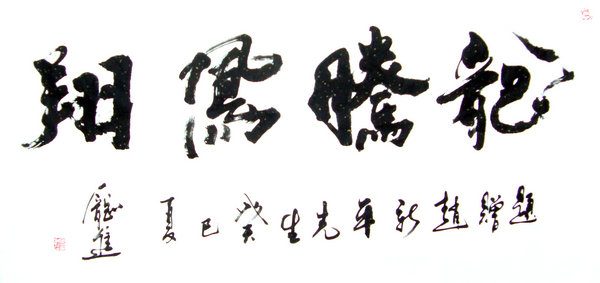 龍騰鳳翔
題贈趙新平先生癸巳夏
龐進